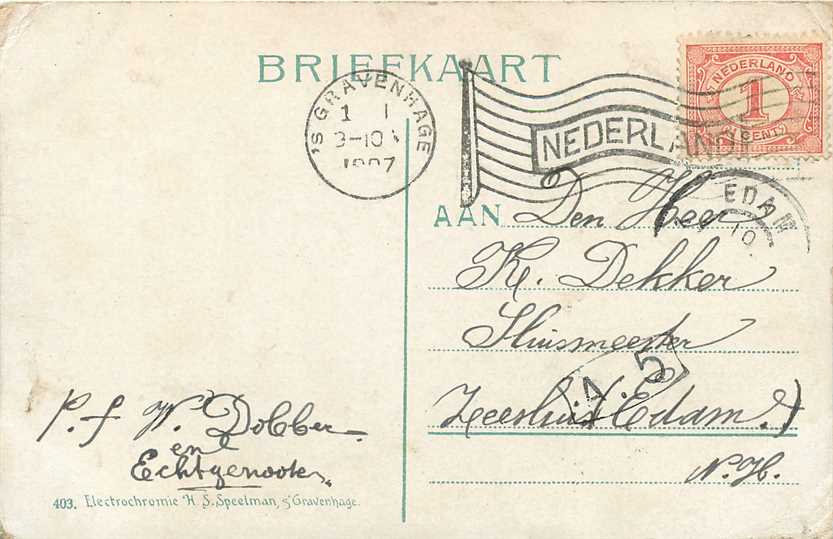 BRIEFKAART
'S GRAVENHAGE
1 1
1907
NEDERLAND
NEDERLAND
1
CENT
EDAM
10
AAN Den Heer
K. Dekker
Sluismeester
A. 5
Zeesluis Edam.
N.H.
P. f W. Dobber
en
Echtgenoote
403. Electrochromie H. S. Speelman, s'Gravenhage.